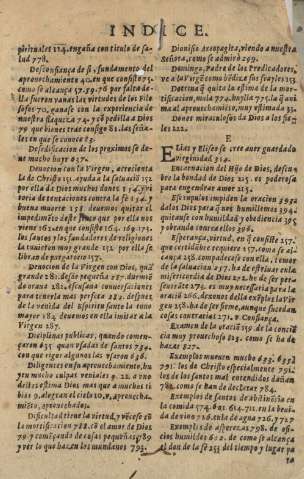 INDICE.
pirituales 124. engaña con titulo de sa-
lud 778.
Desconfiança de si, fundamento del
aprouechamiento 40. en que consiste 75.
como se alcança 57. 59. 76 por falta de-
lla fueron vanas las virtudes de los Filo
sofos 70. ganase con la experiencia de
nuestra flaqueza 74. y es pedilla a Dios
79 que bienes trae consigo 81. las seña-
les en que se conoce 83.
Desedificacion de los proximos se de-
ue mucho huyr 637.
Deuocion con la Virgen, acrecienta
la de Christo 151. ayuda a la saluaciõ 152
por ella da Dios muchos dones 154. y vi
toria de tentaciones contra la fe 154. y
buena muerte 157. deuemos quitar el
impedimẽto que por ella nos
viene 162. en que consiste 164. 169. 173.
los santos y los fundadores de religiones
la tuuieron muy grande 152. por ella se
libran de purgatorio 157.
Deuocion de la Virgen con Dios, quã
grande 280. desde pequeña 277. durmiẽ
do oraua 281. escusaua conuersaciones
para tenerla mas perfeta 282. despues
de la venida del Espiritu santo la tuuo
mayor 284. deuemos en ella imitar a la
Virgen 287.
Disciplinas publicas, quando comen-
çaron 635 quan vsadas de santos 734.
con que rigor algunas las vsaron 636.
Diligentes en su aprouechamiento, hu
yen mucho culpas veniales 9. 22. a vno
destos estima Dios mas que a muchos ti
bios 9. alegran el cielo 10. v. aprouecha-
miẽto, aprouechados.
Dificultad tiene la virtud, y vẽcese cõ
la mortificacion 788. cõ el amor de Dios
79. y començando de cosas pequeñas 789
y ver lo que hazen los mundanos 793.
Dionisio Areopagita, viendo a nuestra
Señora, como se admirò 299.
Domingo, Padre de los Predicadores,
ve a la Virgẽ como bẽdize sus frayles 153.
Dotrina que quita la estima de la mor-
tificacion, mala 774. huylla 775. la que ani
ma al aprouechamiẽto, muy estimada 35.
Dones miraculosos da Dios a los fie
les 222.
E
Elias y Eliseo se cree auer guardado
virginidad 314.
Encarnacion del Hijo de Dios, descu-
bre la bondad de Dios 223. es poderosa
para engendrar amor 225.
Escrupulos impidan la oracion 394
dados por Dios para que humillemos 394
quitanse con humildad y obediencia 395
y obrando contra ellos 396.
Esperança, virtud, en que consiste 257.
que confianças requiere 257. como se al-
cança 258. compadecese con ella, el temor
de la saluacion 257. ha de estriuar en la
misericordia de Dios 272. ha de ser para
seruirle 275. es muy necessaria para la
oracion 286. deuemos della exemplo la Vir
gen 258. ha de ser firme, aunque sucedan
cosas contrarias 271. v. Confiança.
Examen de la oraciõ 159. de la concien
cia muy prouechoso 623. como se ha de
hazer 627.
Exemplos mueuen mucho 633. 693.
791. los de Christo especialmente 791.
los de los santos mas estimados deuẽ
782. como se han de declarar 784.
Exemplos de santos de abstinẽcia en
la comida 574. 611. 614. 711. en la beui-
da de vino 716. en la de agua 716. 717. v
Exemplos de aspereza 798. de ofi-
cios humildes 622. de como se alcança
el don de la fe 253. del tiempo y lugar pa
ra